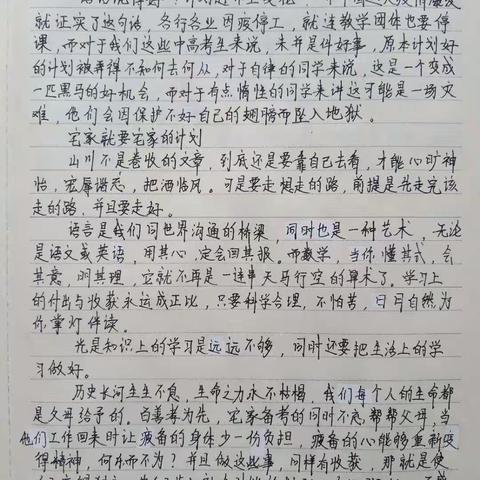 就证实了这句话，各行各业因疫停工，就连教学团体也要停
课，而对于我们这些中高考生来说，未并是件好事，原本计划好
的计划被弄得不知何去何从，对于自律的同学来说，这是一个变成
一匹黑马的好机会，而对于有点惰性的同学来讲这可能是一场灾
难，他们会因保护不好自己的翅膀而坠入地狱。
宅家就要宅家的计划
山川不是卷收的文章，到底还是要靠自己去看，才能心旷神
怡，宠辱谐忘，把酒临风。可是要走想走的路，前提是先走完该
走的路，并且要走好。
语言是我们同世界沟通的桥梁，同时也是一种艺术，无论
是语文或英语，用其心，定会回其报。而数学，当你懂其式，会
其意，明其理，它就不再是一连串天马行空的算术了。学习上
的付出与收获永远成正比，只要科学合理，不怕苦，日月自然为
你掌灯伴读。
光是知识上的学习是远远不够，同时还要把生活上的学
习做好。
历史长河生生不息，生命之力永不枯竭，我们每个人的生命都
是父母给予的。百善孝为先，宅家备考的同时不忘帮帮父母，当
他们工作回来时让疲备的身体少一份负担，疲备的心能够重新变
得精神，何乐而不为？并且做这些事，同样有收获，那就是使